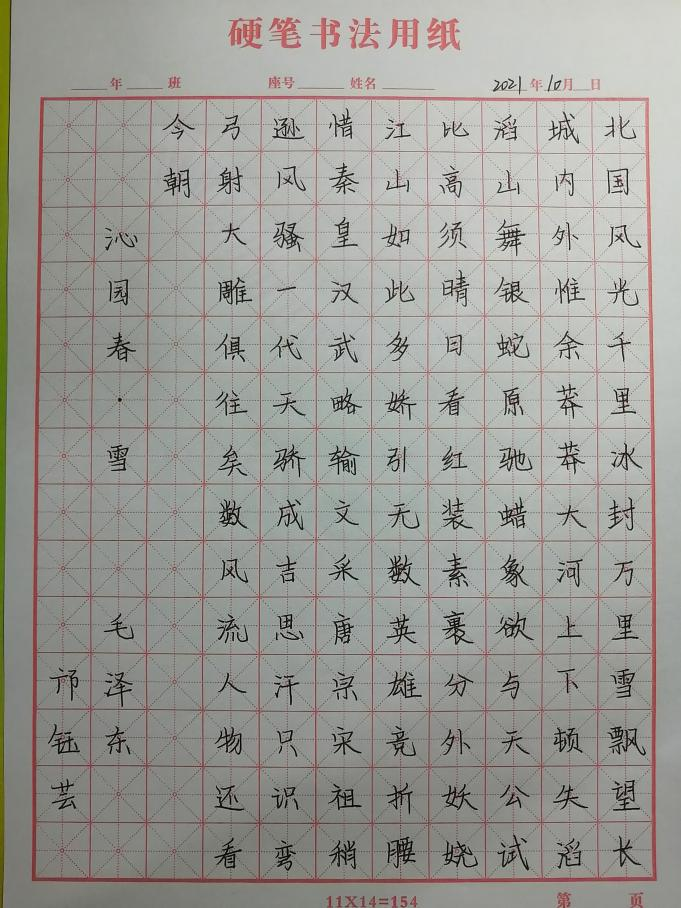 硬笔书法用纸
年 班 座号 姓名 2021年10月 日
北国风光千里冰封万里雪飘望长
城内外惟余莽莽大河上下顿失滔
滔山舞银蛇原驰蜡象欲与天公试
比高须晴日看红装素裹分外妖娆
江山如此多娇引无数英雄竞折腰
惜秦皇汉武略输文采唐宗宋祖稍
逊风骚一代天骄成吉思汗只识弯
弓射大雕俱往矣数风流人物还看
今朝
沁园春·雪 毛泽东
祁钰芸
11X14=154 第 页